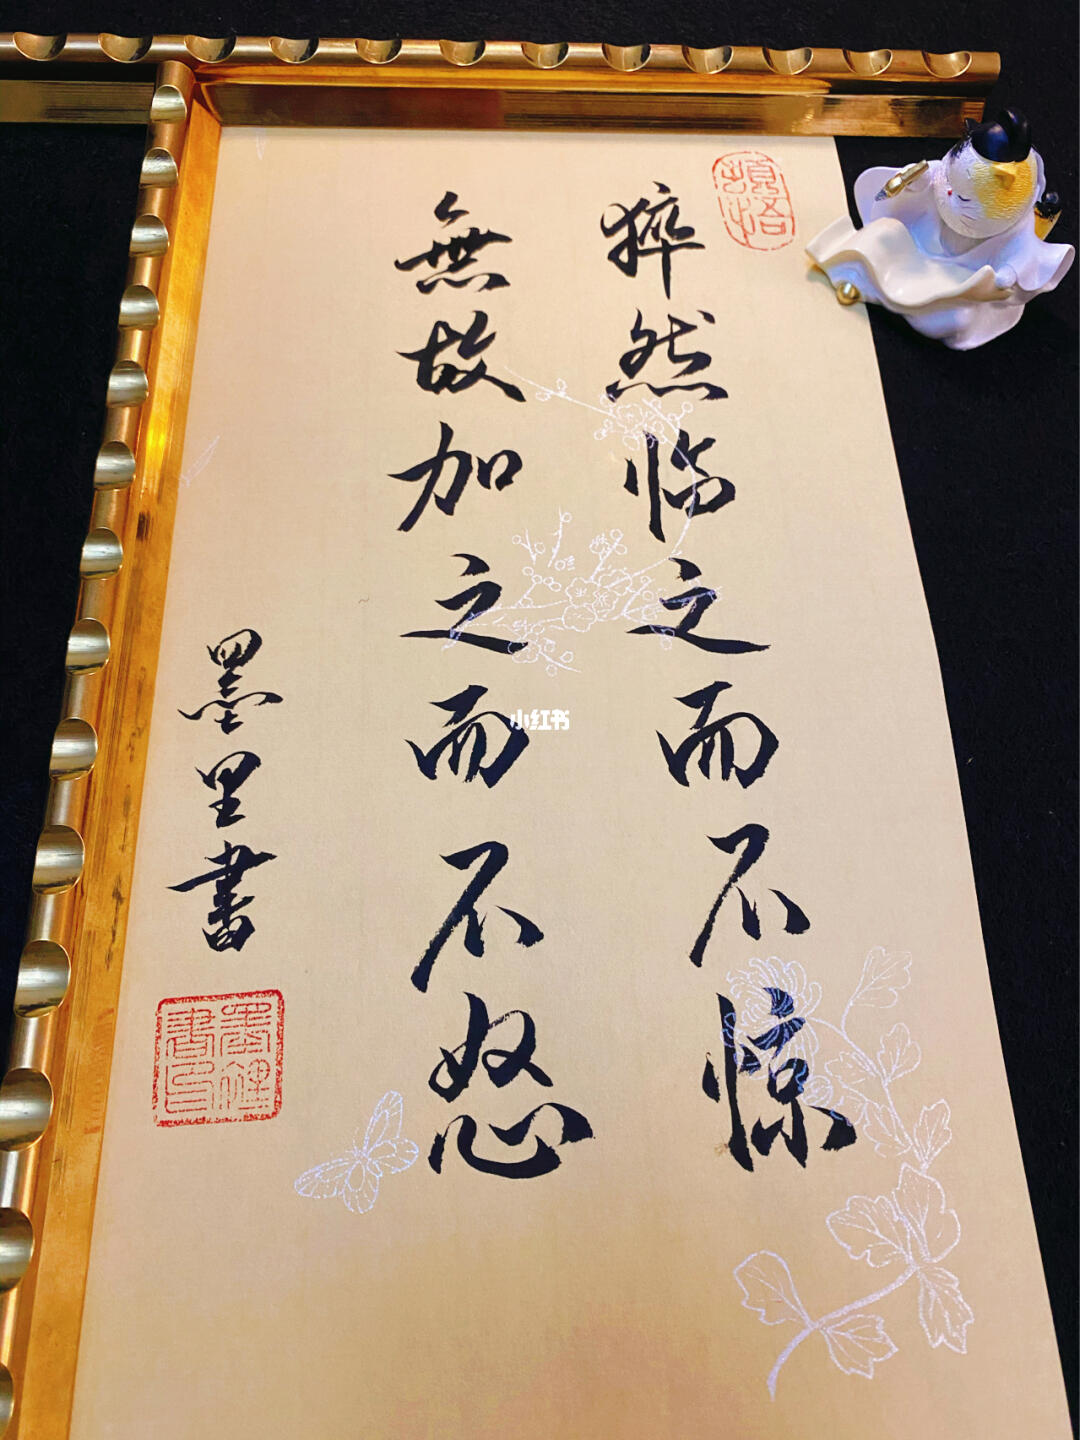 猝然临之而不惊
無故加之而不怒
墨里書
顿悟
小红书